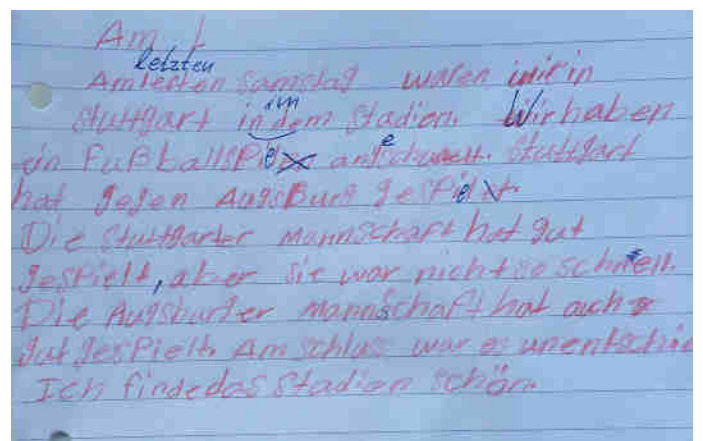 Am l
letzten
Am lersten Samstag waren wir in
im
Stuttgart in dem Stadion. Wir haben
ein Fußballspiel angschauet. Stuttgart
hat gegen Augsburg gespielt.
Die Stuttgarter Mannschaft hat gut
gespielt, aber sie war nicht so schnell.
Die Augsburger Mannschaft hat auch
gut gespielt. Am schlus war es unentschie
Ich finde das Stadion schön.